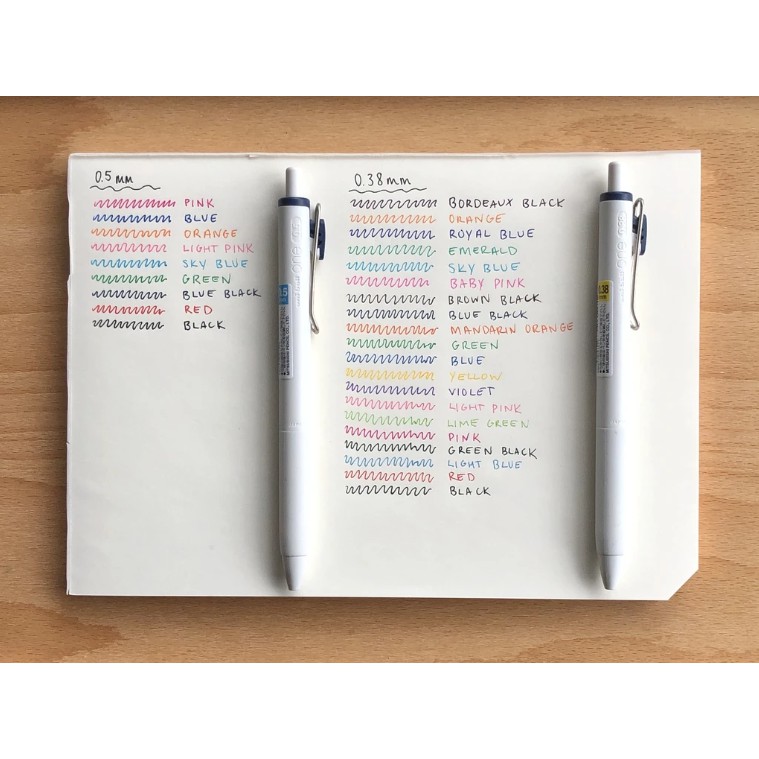 0.5mm
PINK
BLUE
ORANGE
LIGHT PINK
SKY BLUE
GREEN
BLUE BLACK
RED
BLACK
0.38mm
BORDEAUX BLACK
ORANGE
ROYAL BLUE
EMERALD
SKY BLUE
BABY PINK
BROWN BLACK
BLUE BLACK
MANDARIN ORANGE
GREEN
BLUE
YELLOW
VIOLET
LIGHT PINK
LIME GREEN
PINK
GREEN BLACK
LIGHT BLUE
RED
BLACK